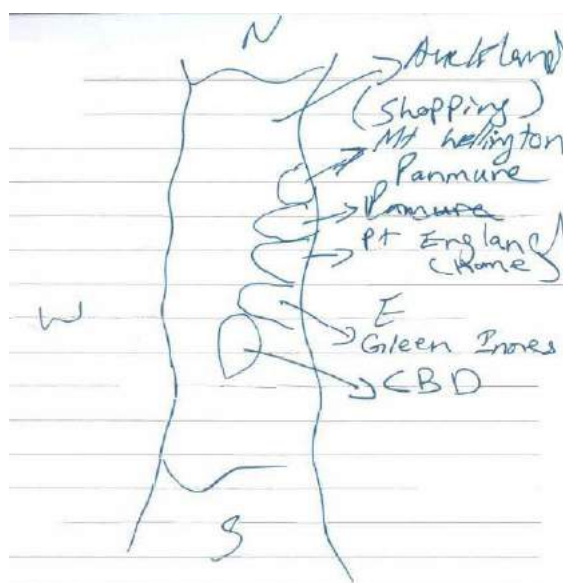 N
Auckland
(Shopping)
Mt Wellington
Panmure
Panmure
Pt England
(Home)
W
E
Gleen Innes
CBD
S